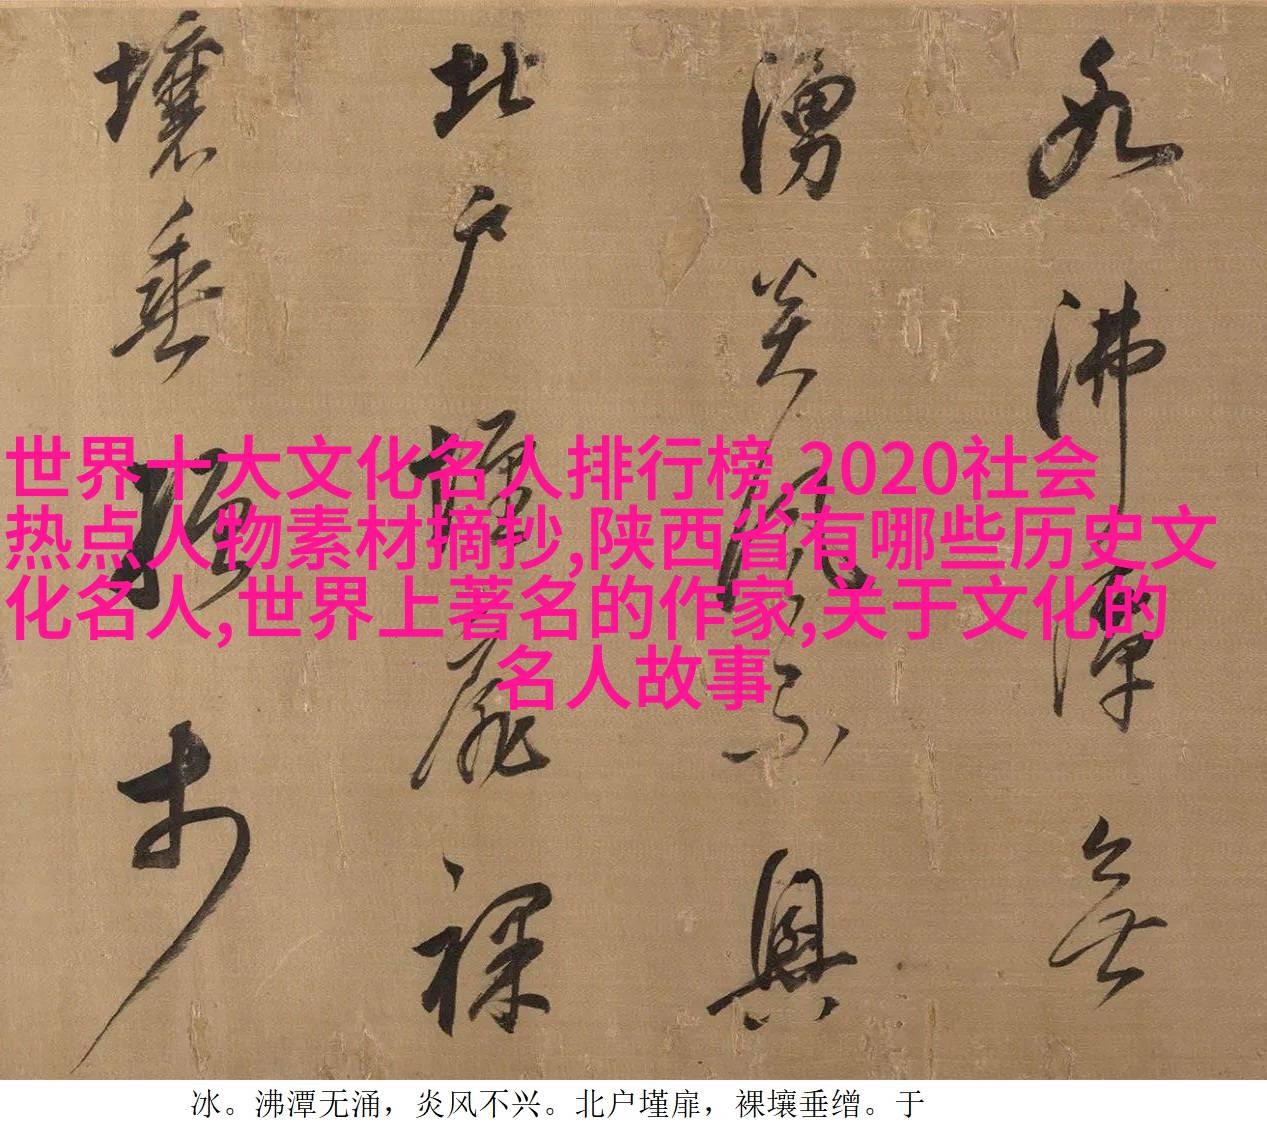 冰沸潭無
湧炎風不興
北戶墐扉裸
壤垂繒於
世界十大文化名人排行榜,2020社会
热点人物素材摘抄,陕西省有哪些历史文
化名人,世界上著名的作家,关于文化的
名人故事
冰。沸潭无涌，炎风不兴。北户墐扉，裸壤垂缯。于